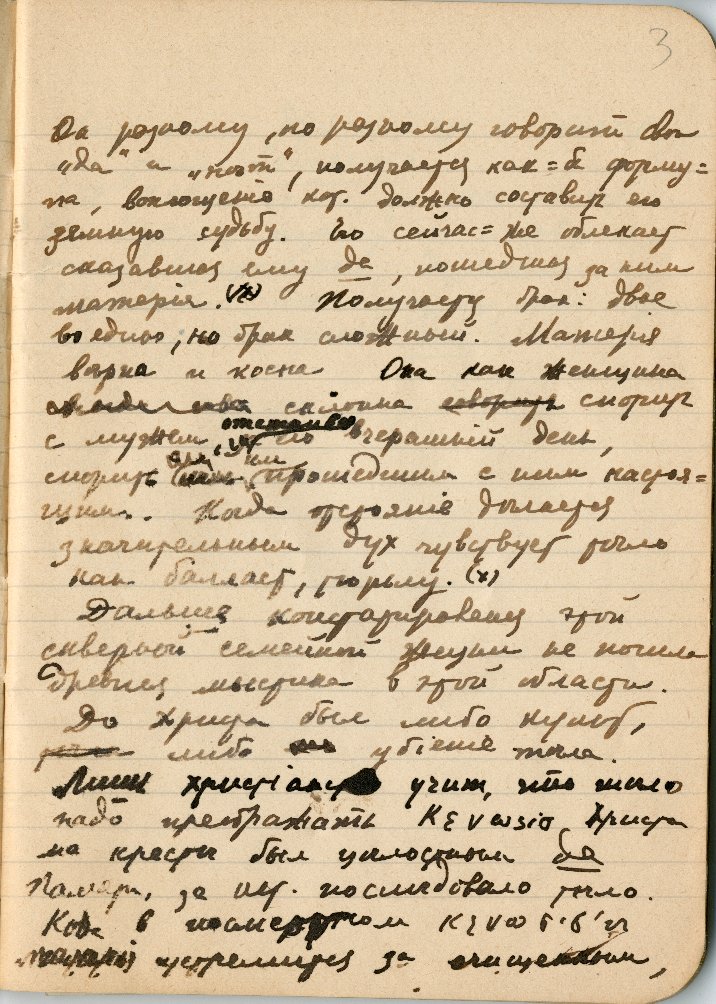 3
По разному, по разному говорит он
"да" и "нѣт", получается как=б форму=
ла, воплощение кот. должно составит его
земную судьбу. Но сейчас=же облекает
сказавшая ему да, пошедшая за ним
матерія. (v) Получается брак: двое
во едино, но брак сложный. Матерія
вѣрна и косна Она как женщина
склонна спорит
с мужем, отстаивая вчерашній день,
спорить прошедшим с ним настоя=
щим. Когда отстояніе дѣлается
значительным дух чувствует тѣло
как балласт, тюрьму. (x)
Дальше констатирования этой
скверной семейной жизни не пошла
древняя мистика в этой области.
До Христа был либо культ,
либо убіеніе тѣла.
Лишь христіанство учит, что тѣло
надо преображать Κενωσισ Христа
на крестѣ был цѣлостным да
Памяти, за нег. последовало тѣло.
Ковь в посмертном κενωσισ'и
матерія устремится за очищенным,